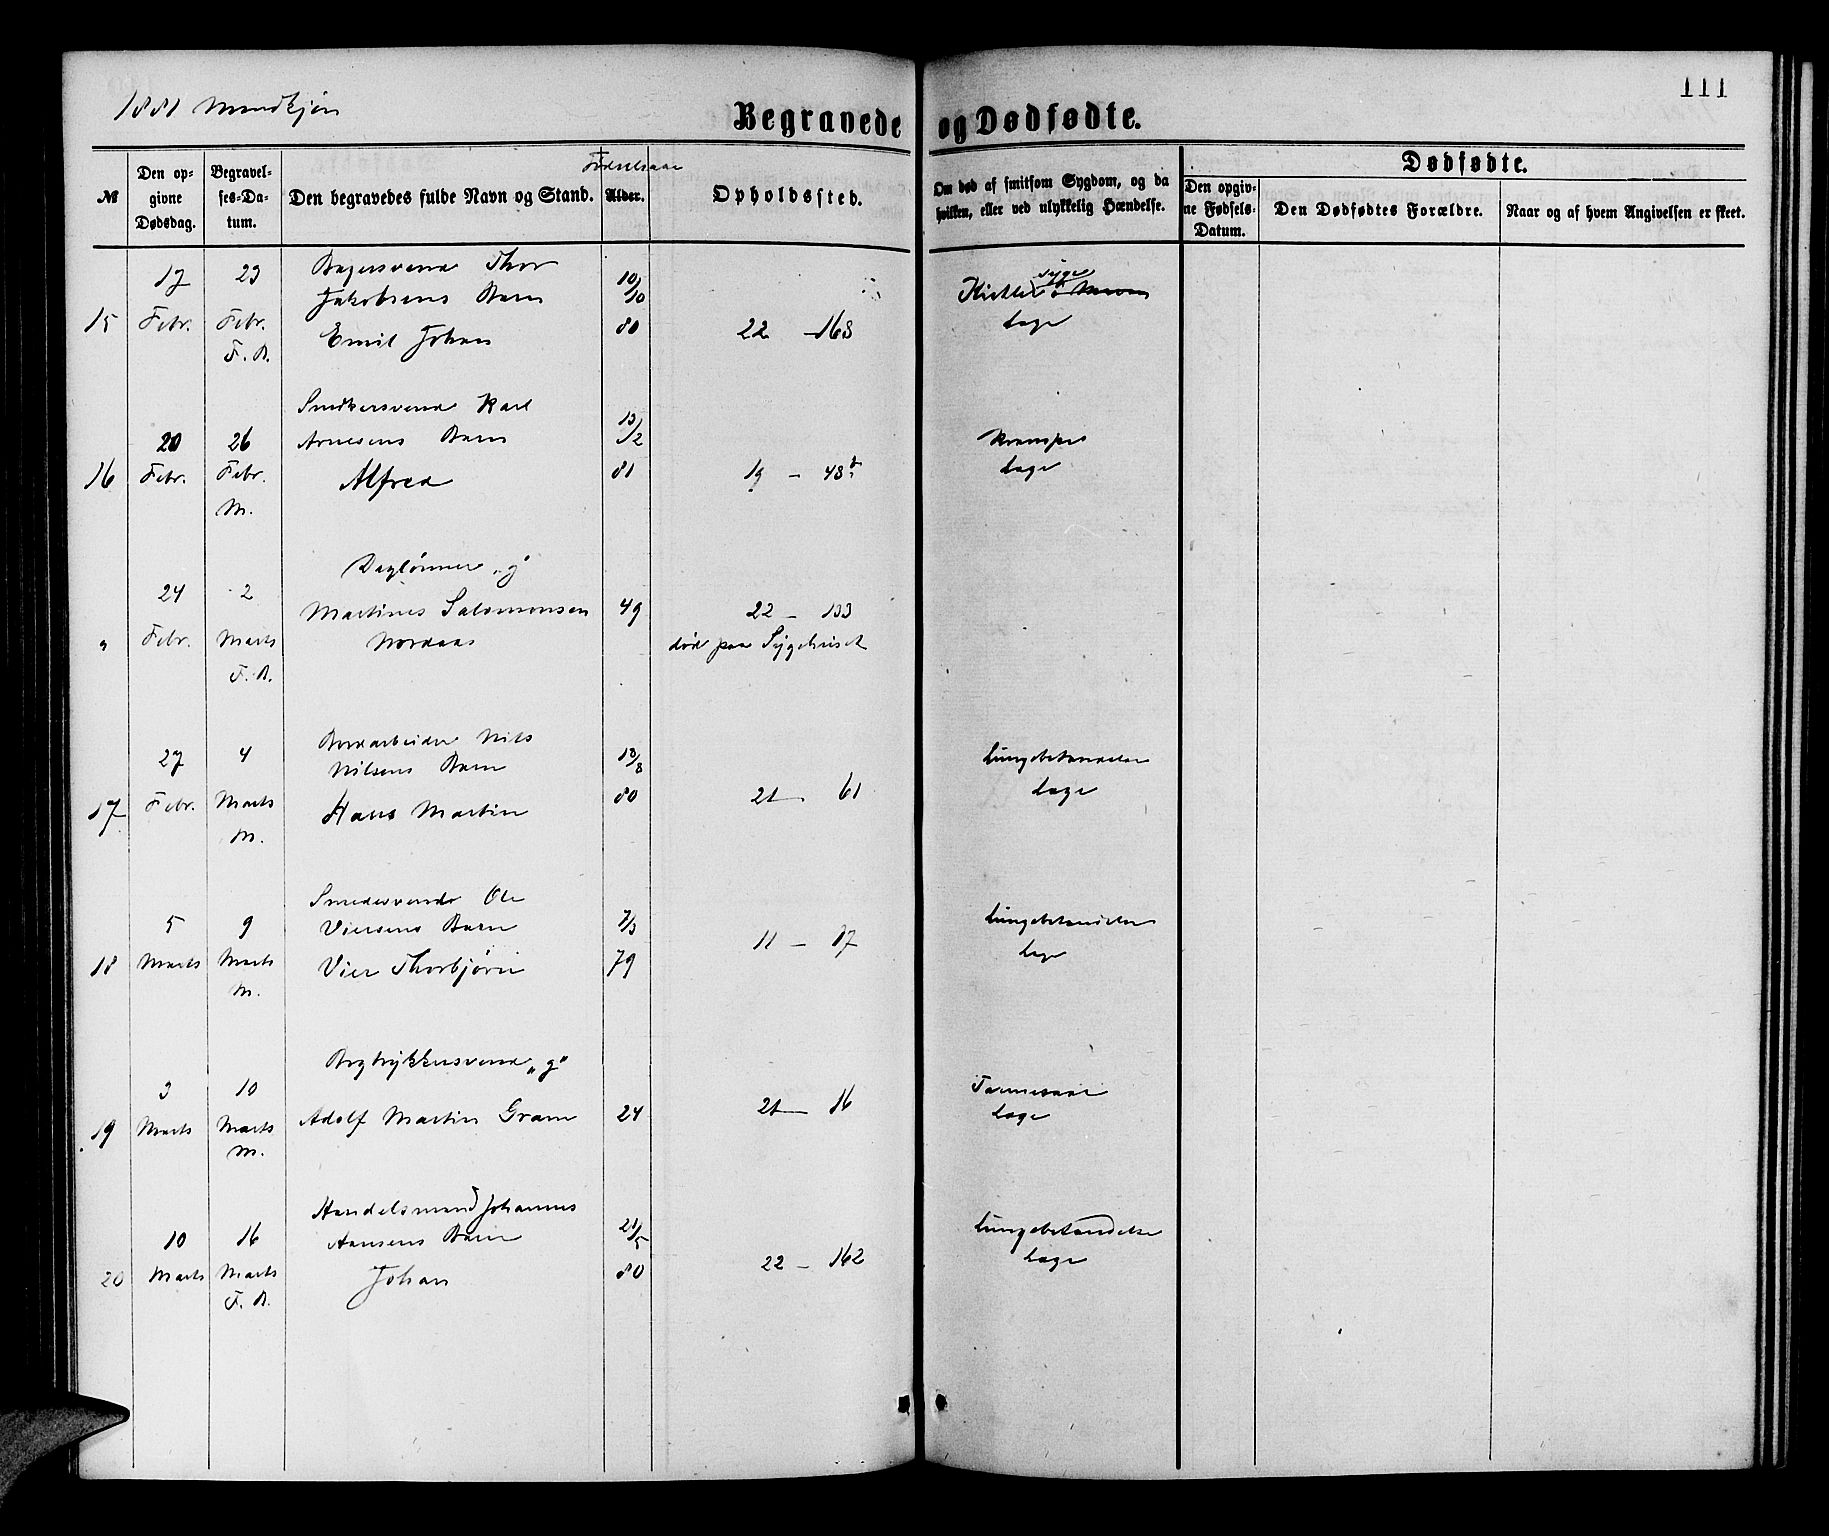 111
1881 Mandkjøn
Begravede og Dødfødte.
№
Den op-
givne
Dødsdag.
Begravel-
ses-Da-
tum.
Den begravedes fulde Navn og Stand.
Fødselsaar
Alder.
Opholdssted.
Om død af smitsom Sygdom, og da
hvilken, eller ved ulykkelig Hændelse.
Dødfødte.
Den opgiv-
ne Fødsels-
Datum.
Den Dødfødtes Forældre.
Naar og af hvem Angivelsen er skeet.
15
17
Febr.
23
Febr.
F. A.
Bagersvend Thor
Jakobsens Barn
Emil Johan
10/10
80
22 - 168
Kirtelsyge
Læge
16
20
Febr.
26
Febr.
M.
Snedkersvend Karl
Arnesens Barn
Alfred
13/2
81
19 - 48b
Krampe
Læge
"
24
Febr.
2
Marts
F. A.
Daglønner "g"
Martines Salomonsen
Nordaas
49
22 - 133
død paa Sygehuset
17
27
Febr.
4
Marts
M.
Bordarbeider Nils
Nilsens Barn
Hans Martin
13/8
80
21 - 61
Lungebetændelse
Læge
18
5
Marts
9
Marts
M.
Smedesvend Ole
Viersens Barn
Vier Thorbjørn
7/3
79
11 - 17
Lungebetændelse
Læge
19
3
Marts
10
Marts
M.
Bogtrykkersvend "g"
Adolf Martin Gram
24
21 - 16
Læge
20
10
Marts
16
Marts
F. A.
Handelsmand Johannes
Hansens Barn
Johan
21/5
80
22 - 162
Lungebetændelse
Læge